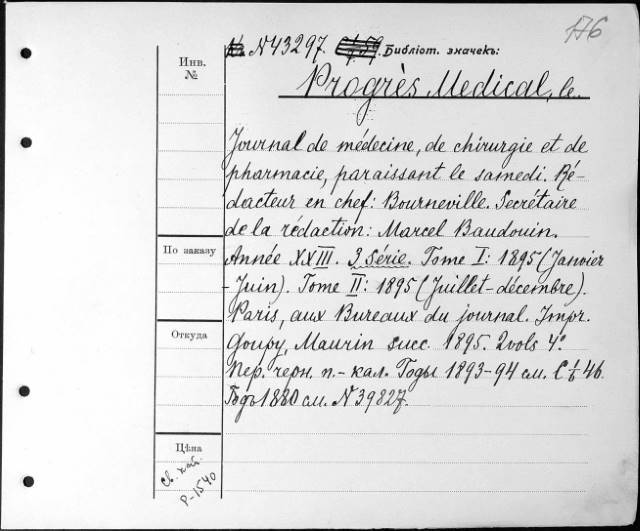 176
N 43297. Библіот. значекъ:
Инв.
№
Progrès Medical, le.
Journal de médecine, de chirurgie et de
pharmacie, paraissant le samedi. Ré-
dacteur en chef: Bourneville. Secrétaire
de la rédaction: Marcel Baudouin.
По заказу
Année XXIII. 3 Série. Tome I: 1895 (Janvier
-Juin). Tome II: 1895 (Juillet-décembre).
Paris, aux Bureaux du journal. Impr.
Откуда
Goupy, Maurin succ 1895. 2 vols 4º
Пер. черн. п.-кал. Годы 1893-94 см. C 1/6 46
Годъ 1880 см. N 39827.
Цѣна
Св. кат.
Р-1540